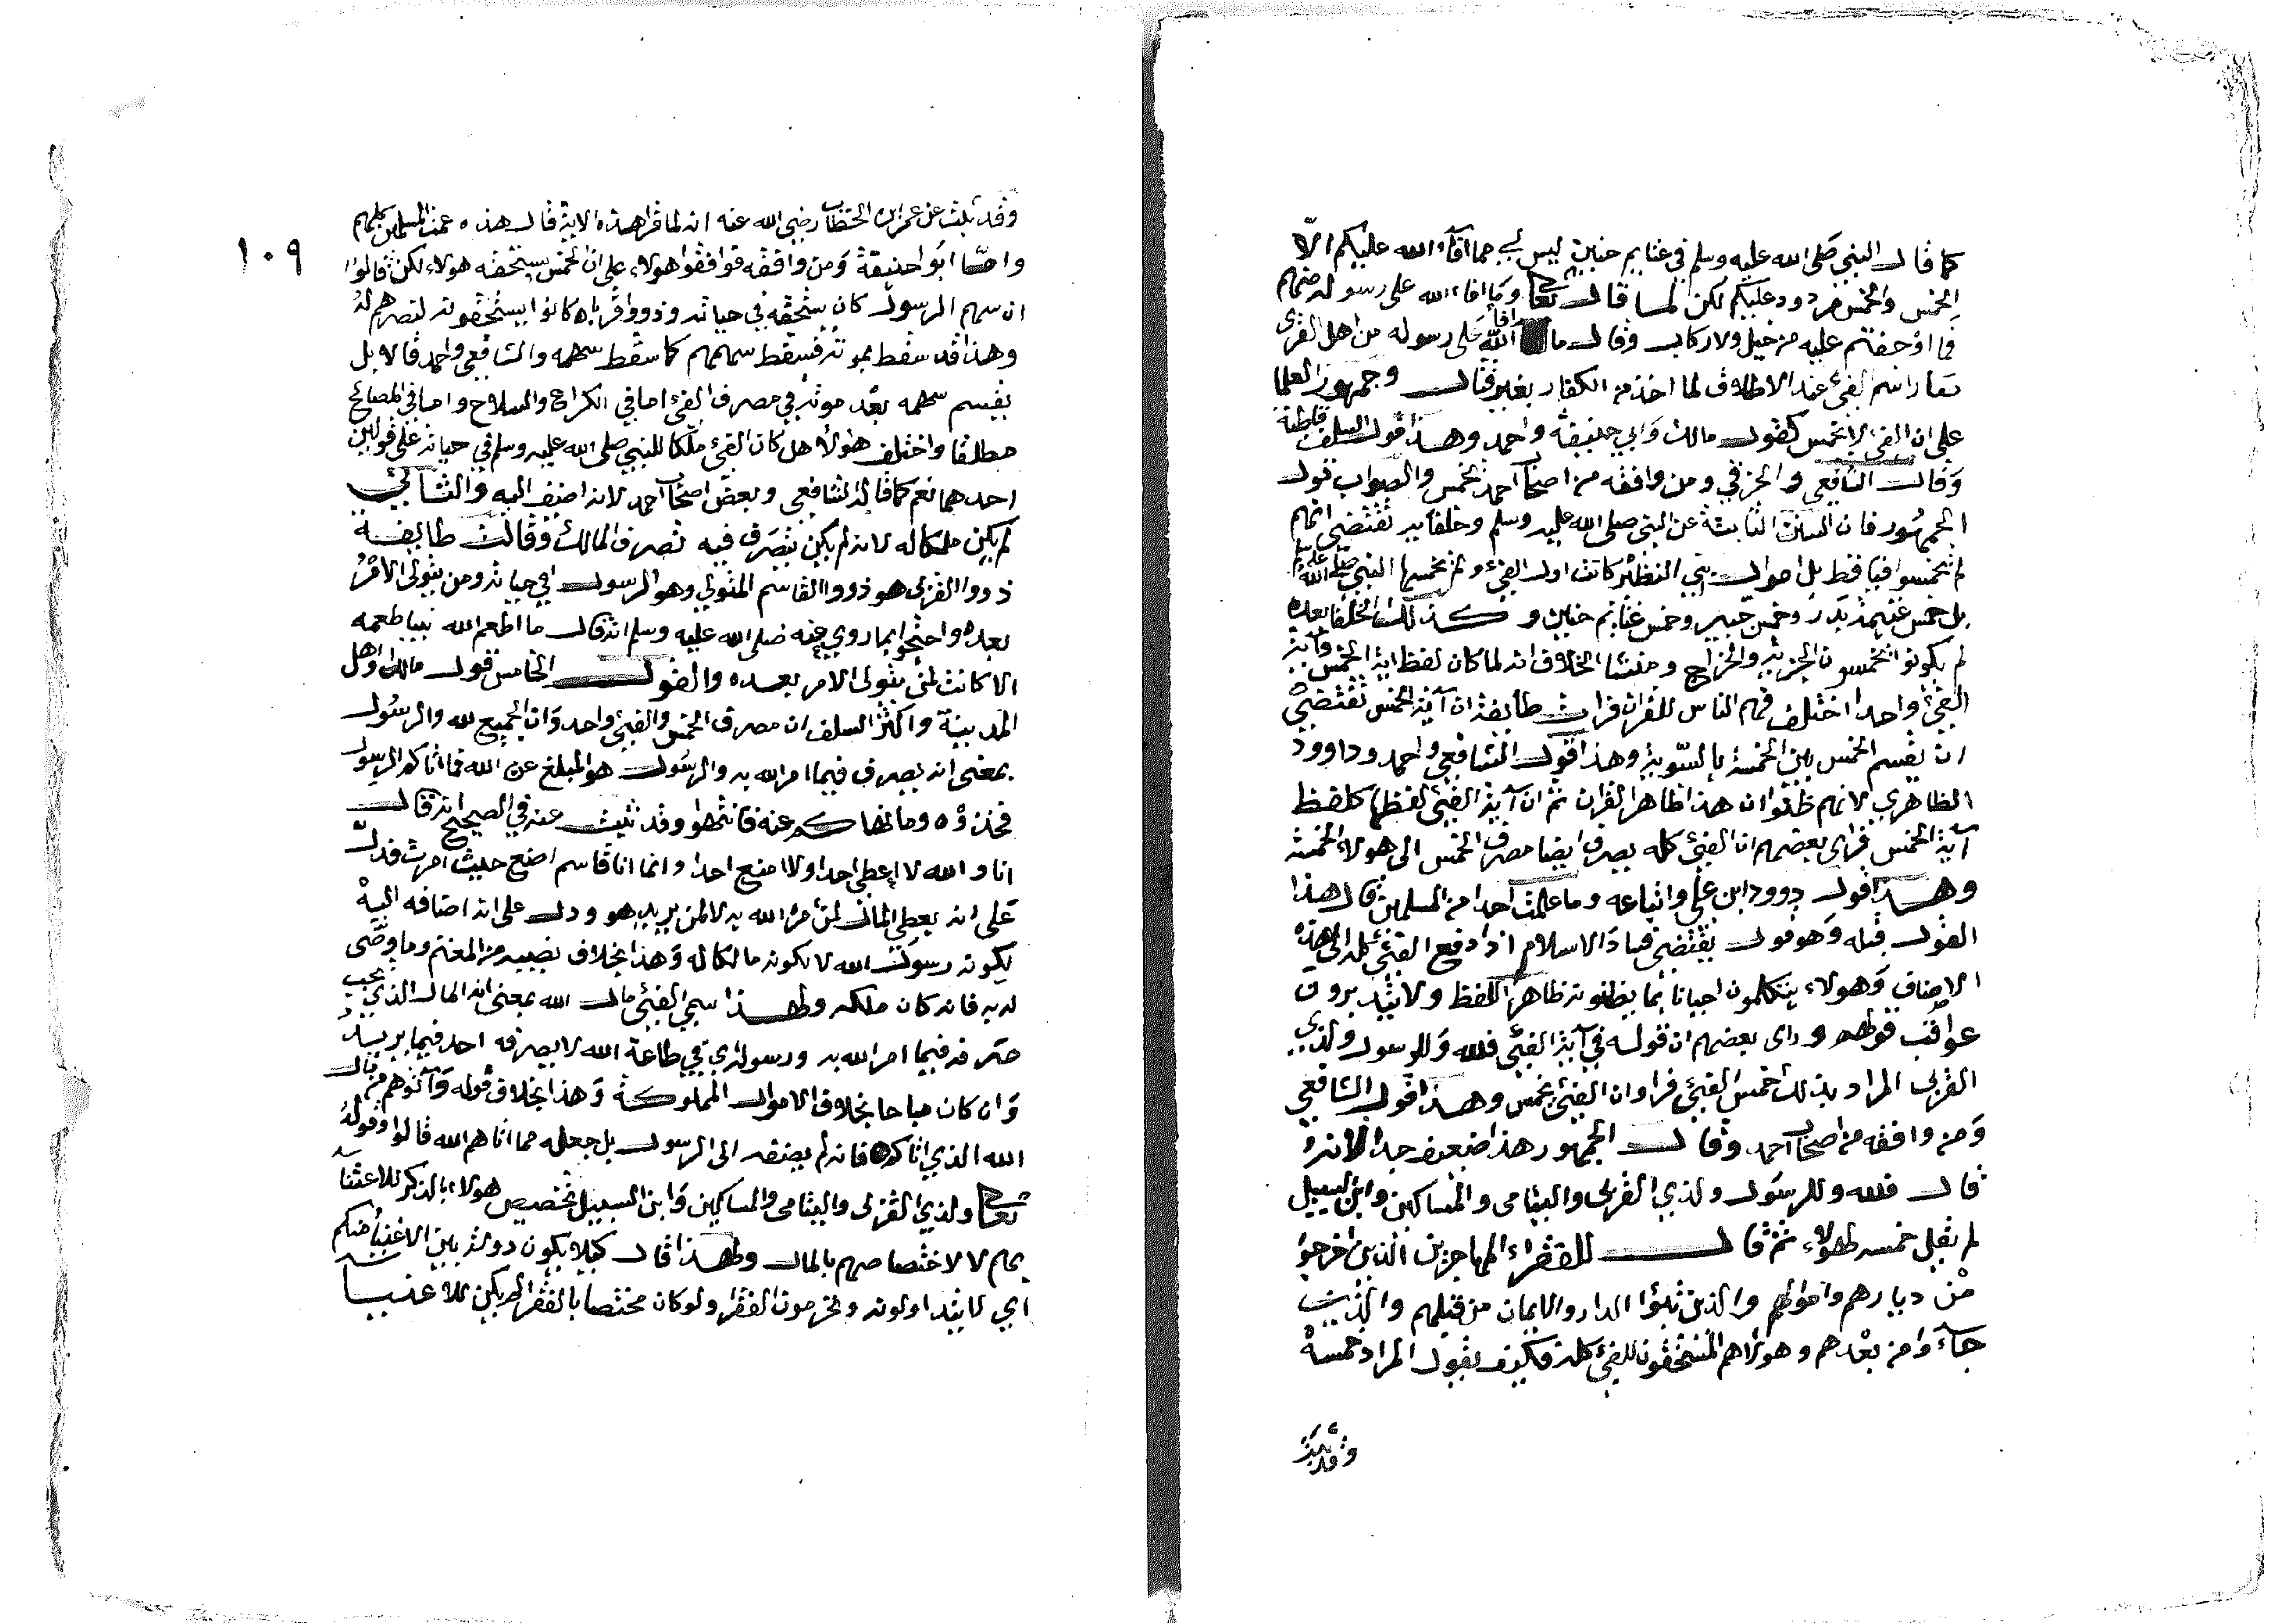 كما قال النبي صلى الله عليه وسلم في غنايم حنين ليس لي مما افآء الله عليكم الّا
الخمس والخمس مردود عليكم لكن لما قال تعالى وما افاء الله على رسوله منهم
فما اوجفتم عليه من خيل ولا ركاب وقال ما افا الله على رسوله من اهل القرى
صار اسم الفئ عند الاطلاق لما اخذ من الكفار بغير قتال وجمهور العلما
على ان الفئ لا يخمس كقول مالك وابي حنيفة واحمد وهذا قول السلف قاطبة
وقال الشافعي والخرقي ومن وافقه من اصحاب احمد يخمس والصواب قول
الجمهور فان السنن الثابتة عن النبي صلى الله عليه وسلم وخلفايه تقتضي انهم
لم يخمسوا فيئا قط بل اموال بني النظير كانت اول الفئ ولم يخمسها النبي صلى الله عليه وسلم
بل خمس غنيمة بدر وخمس خيبر وخمس غنايم حنين وكذلك الخلفا بعده
لم يكونوا يخمسون الجزية والخراج ومنشا الخلاف انه لما كان لفظ اية الخمس وآية
الفئ واحدا اختلف فهم الناس للقران فرات طايفة ان آية الخمس تقتضي
ان يقسم الخمس بين الخمسة بالسّوية وهذا قول الشافعي واحمد وداوود
الظاهري لانهم ظنوا ان هذا ظاهر القران ثم ان آية الفئ لفظها كلفظ
آية الخمس فراى بعضهم ان الفئ كله يصرف ايضا مصرف الخمس الى هولاء الخمسة
وهذا قول دوود ابن علي واتباعه وما علمت احدا من المسلمين قال هذا
القول قبله وهو قول يقتضي فساد الاسلام اذا دفع الفئ كله الى هذه
الاصناف وهولاء يتكلمون احيانا بما يظنونه ظاهر اللفظ ولا يتدبرون
عواقب قولهم وراى بعضهم ان قوله في آية الفئ فلله وللرسول ولذي
القربى المراد بذلك خمس الفئ فراوا ان الفئ يخمس وهذا قول الشافعي
ومن وافقه من اصحاب احمد وقال الجمهور هذا ضعيف جدا لانه
قال فلله وللرسول ولذي القربى واليتامى والمساكين وابن السبيل
لم يقل خمسه لهولاء ثم قال للفقراء المهاجرين الذين اخرجوا
من ديارهم واموالهم والذين تبوّؤا الدار والايمان من قبلهم والذين
جآءوا من بعدهم وهولا هم المستحقون للفئ كله فكيف يقول المراد خمسه
وقد ثبت
١٠٩
وقد ثبت عن عمر ابن الخطاب رضي الله عنه انه لما قرا هذه الاية قال هذه عمت المسلمين كلهم
وامّا ابو احنيفة ومن وافقه فوافقوا هولاء على ان الخمس يستحقه هولاء لكن قالوا
ان سهم الرسول كان يستحقه في حياته وذووا قرباه كانوا يستحقونه لنصرهم له
وهذا قد سقط بموته فسقط سهمهم كما سقط سهمه والشافعي واحمد قالا بل
يقسم سهمه بعد موته في مصرف الفئ اما في الكراع والسلاح واما في المصالح
مطلقا واختلف هولا هل كان الفئ ملكا للنبي صلى الله عليه وسلم في حياته على قولين
احدهما نعم كما قاله الشافعي وبعض اصحاب احمد لانه اضيف اليه والثاني
لم يكن ملكا له لانه لم يكن يتصرف فيه تصرف المالك وقالت طايفة
ذووا القربى هو ذووا القاسم المتولي وهو الرسول في حياته ومن يتولى الامر
بعده واحتجوا بما روي عنه صلى الله عليه وسلم انه قال ما اطعم الله نبيا طعمه
الا كانت لمن يتولى الامر بعده والقول الخامس قول مالك واهل
المدينة واكثر السلف ان مصرف الخمس والفئ واحد وان الجميع لله والرسول
بمعنى انه يصرف فيما امر الله به والرسول هو المبلغ عن الله فما اتاكم الرسول
فخذوه وما نهاكم عنه فانتهوا وقد ثبت عنه في الصحيح انه قال
انا والله لا اعطي احدا ولا امنع احدا وانما انا قاسم اضع حيث امرت فدلّ
على انه يعطي المال لمن امره الله به لا لمن يريد هو ودل على انه اضافه اليه
لكونه رسول الله لا لكونه مالكا له وهذا بخلاف نصيبه من المغنم وما وصّى
له به فانه كان ملكه ولهذا سمي الفئ مال الله بمعنى انه المال الذي يجب
صرفه فيما امر الله به ورسوله اي في طاعة الله لا يصرفه احد فيما يريد
وان كان مباحا بخلاف الاموال المملوكة وهذا بخلاف قوله وآتوهم من مال
الله الذي اتاكم فانه لم يضفه الى الرسول بل جعله مما اتاهم الله قالوا وقوله
تعالى ولذي القربى واليتامى والمساكين وابن السبيل تخصيص هولاء بالذكر للاعتنا
بهم لا لاختصاصهم بالمال ولهذا قال كيلا يكون دولة بين الاغنيا منكم
اي لا يتداولونه وتحرمون الفقرا ولو كان مختصا بالفقرا لم يكن للاغنيا